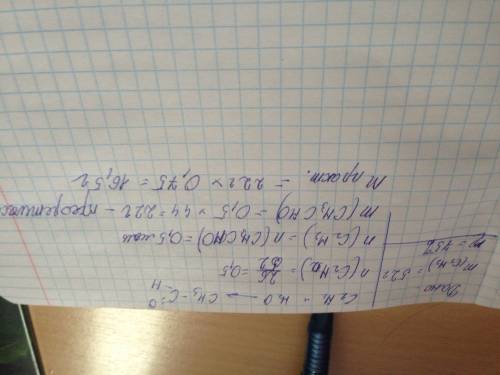 Дано
m(C₂H₂) = 52 г
η = 75%
C₂H₂ + H₂O → CH₃-C=O
H
n(C₂H₂) = 26/52 = 0,5
n(C₂H₂) = n(CH₃CHO) = 0,5 моль
m(CH₃CHO) = 0,5 × 44 = 22 г -
m практ. = 22 г × 0,75 = 16,5 г